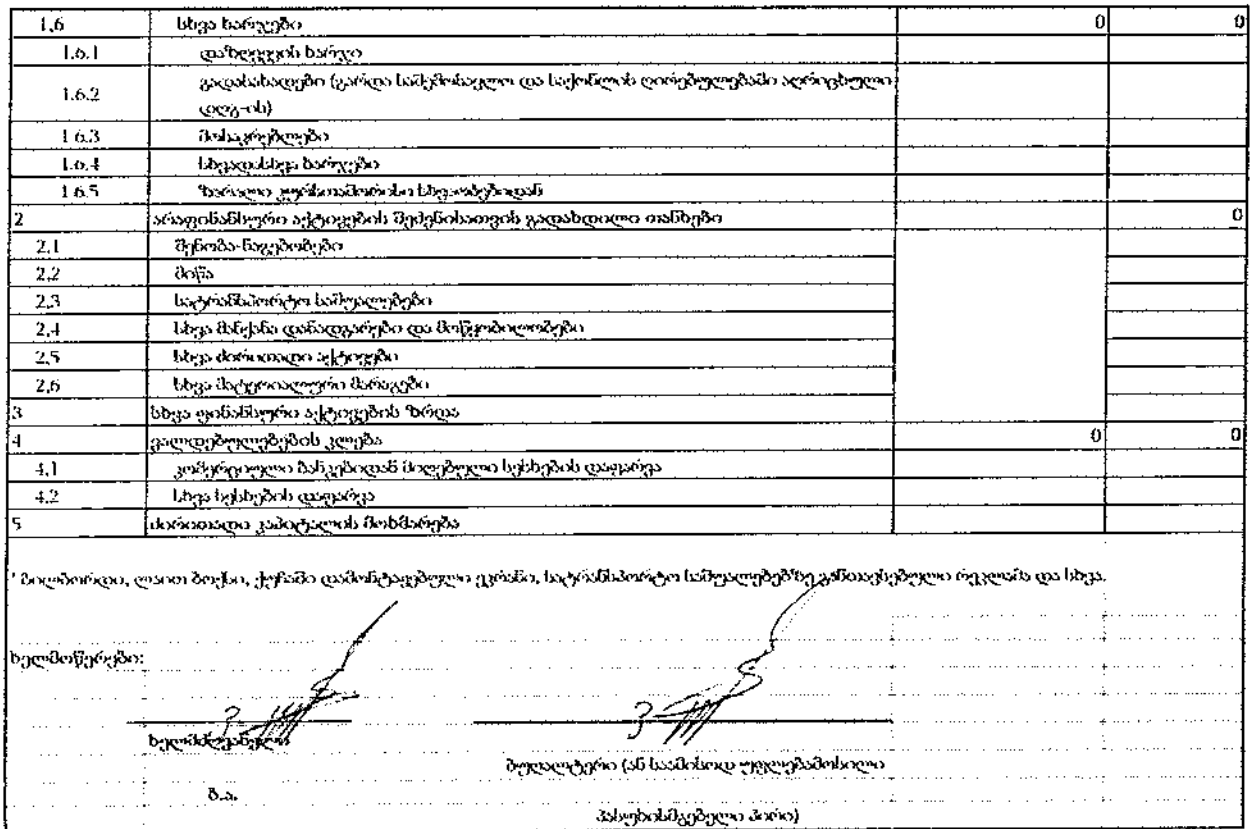 1.6 სხვა ხარჯები 0 0
1.6.1 დაზღვევის ხარჯი
1.6.2 გადასახადები (გარდა საშემოსავლო და საქონლის ღირებულებაში აღრიცხული
დღგ-ის)
1.6.3 მოსაკრებლები
1.6.4 სხვადასხვა ხარჯები
1.6.5 ზარალი კურსთაშორისი სხვაობებიდან
2 არაფინანსური აქტივების შეძენისათვის გადახდილი თანხები 0
2.1 შენობა-ნაგებობები
2.2 მიწა
2.3 სატრანსპორტო საშუალებები
2.4 სხვა მანქანა დანადგარები და მოწყობილობები
2.5 სხვა ძირითადი აქტივები
2.6 სხვა მატერიალური მარაგები
3 სხვა ფინანსური აქტივების ზრდა
4 ვალდებულებების კლება 0 0
4.1 კომერციული ბანკებიდან მიღებული სესხების დაფარვა
4.2 სხვა სესხების დაფარვა
5 ძირითადი კაპიტალის მოხმარება
' ბილბორდი, ლაით ბოქსი, ქუჩაში დამონტაჟებული ეკრანი, სატრანსპორტო საშუალებებზე განთავსებული რეკლამა და სხვა.
ხელმოწერები:
ხელმძღვანელი
ბუღალტერი (ან საამისოდ უფლებამოსილი
ბ.ა.
პასუხისმგებელი პირი)